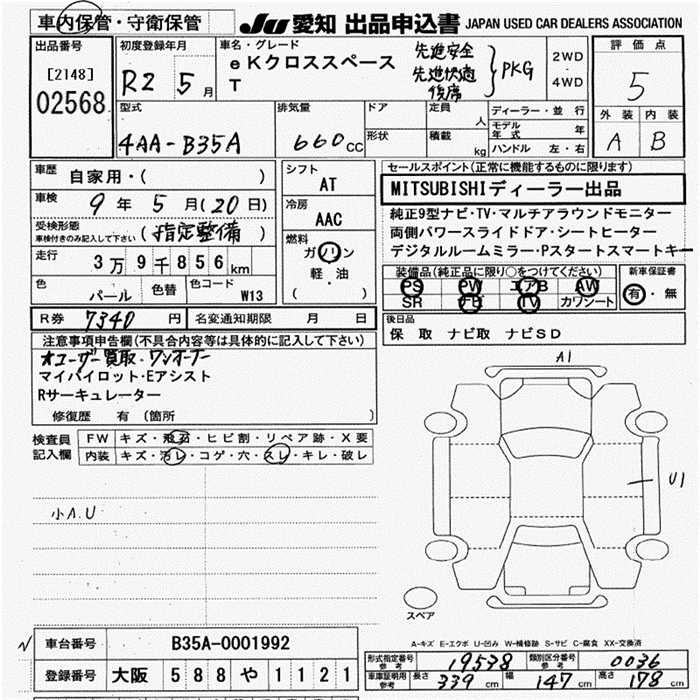 車内保管・守衛保管
JU 愛知 出品申込書 JAPAN USED CAR DEALERS ASSOCIATION
出品番号
[2148]
02568
初度登録年月
R2 5月
車名・グレード
eKクロススペース
T
先進安全
先進快適
PKG
2WD
4WD
評価点
5
外装 内装
A B
型式
4AA-B35A
排気量
660cc
ドア
形状
定員 人
積載 kg
ディーラー・並行
モデル年式 年
ハンドル 左・右
車歴 自家用・( )
車検 9年 5月(20日)
受検形態
車検付きのみ記入して下さい (指定整備)
走行 3万9千856km
色 パール 色替 色コード W13
シフト
AT
冷房
AAC
燃料
ガソリン
軽・油
( )
セールスポイント(正常に機能するものに限ります)
MITSUBISHIディーラー出品
純正9型ナビ・TV・マルチアラウンドモニター
両側パワースライドドア・シートヒーター
デジタルルームミラー・Pスタートスマートキー
装備品(純正品に限り○をつけてください)
PS PW エアB AW
SR TV カワシート
新車保証書
有・無
R券 7340円 名変通知期限 月 日
後日品
保 取 ナビ取 ナビSD
注意事項申告欄(不具合内容等は具体的に記入して下さい)
オユーザー買取・ワンオーナー
マイパイロット・Eアシスト
Rサーキュレーター
修復歴 有 (箇所 )
検査員
記入欄
FW キズ・飛石・ヒビ割・リペア跡・X要
内装 キズ・汚レ・コゲ・穴・スレ・キレ・破レ
小A.U
A1
U1
スペア
車台番号 B35A-0001992
登録番号 大阪 588 や 1121
A-キズ E-エクボ U-凹み W-補修跡 S-サビ C-腐食 XX-交換済
形式指定番号参考 19538 類別区分番号参考 0036
車庫証明用参考 長さ 339cm 幅 147cm 高さ 178cm